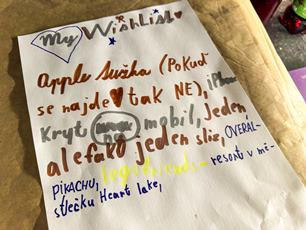 My WishList
Apple tužka (Pokuď
se najde tak NE), iPhone
Kryt na mobil, jeden
ale fakt jeden sliz, OVERÁL-
PIKACHU, lego friends - resort v mě-
stečku Heart lake,